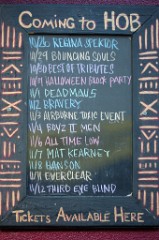 COMING TO HOB
10/26 REGINA SPEKTOR
10/29 BOUNCING SOULS
10/30 BEST OF TRIBUTES
10/31 HALLOWEEN BLOCK PARTY
11/1 DEADMAU5
11/2 BRAVERY
11/3 AIRBOURNE TOXIC EVENT
11/4 BOYZ II MEN
11/6 ALL TIME LOW
11/7 MAT KEARNEY
11/8 HANSON
11/11 EVERCLEAR
11/12 THIRD EYE BLIND
TICKETS AVAILABLE HERE